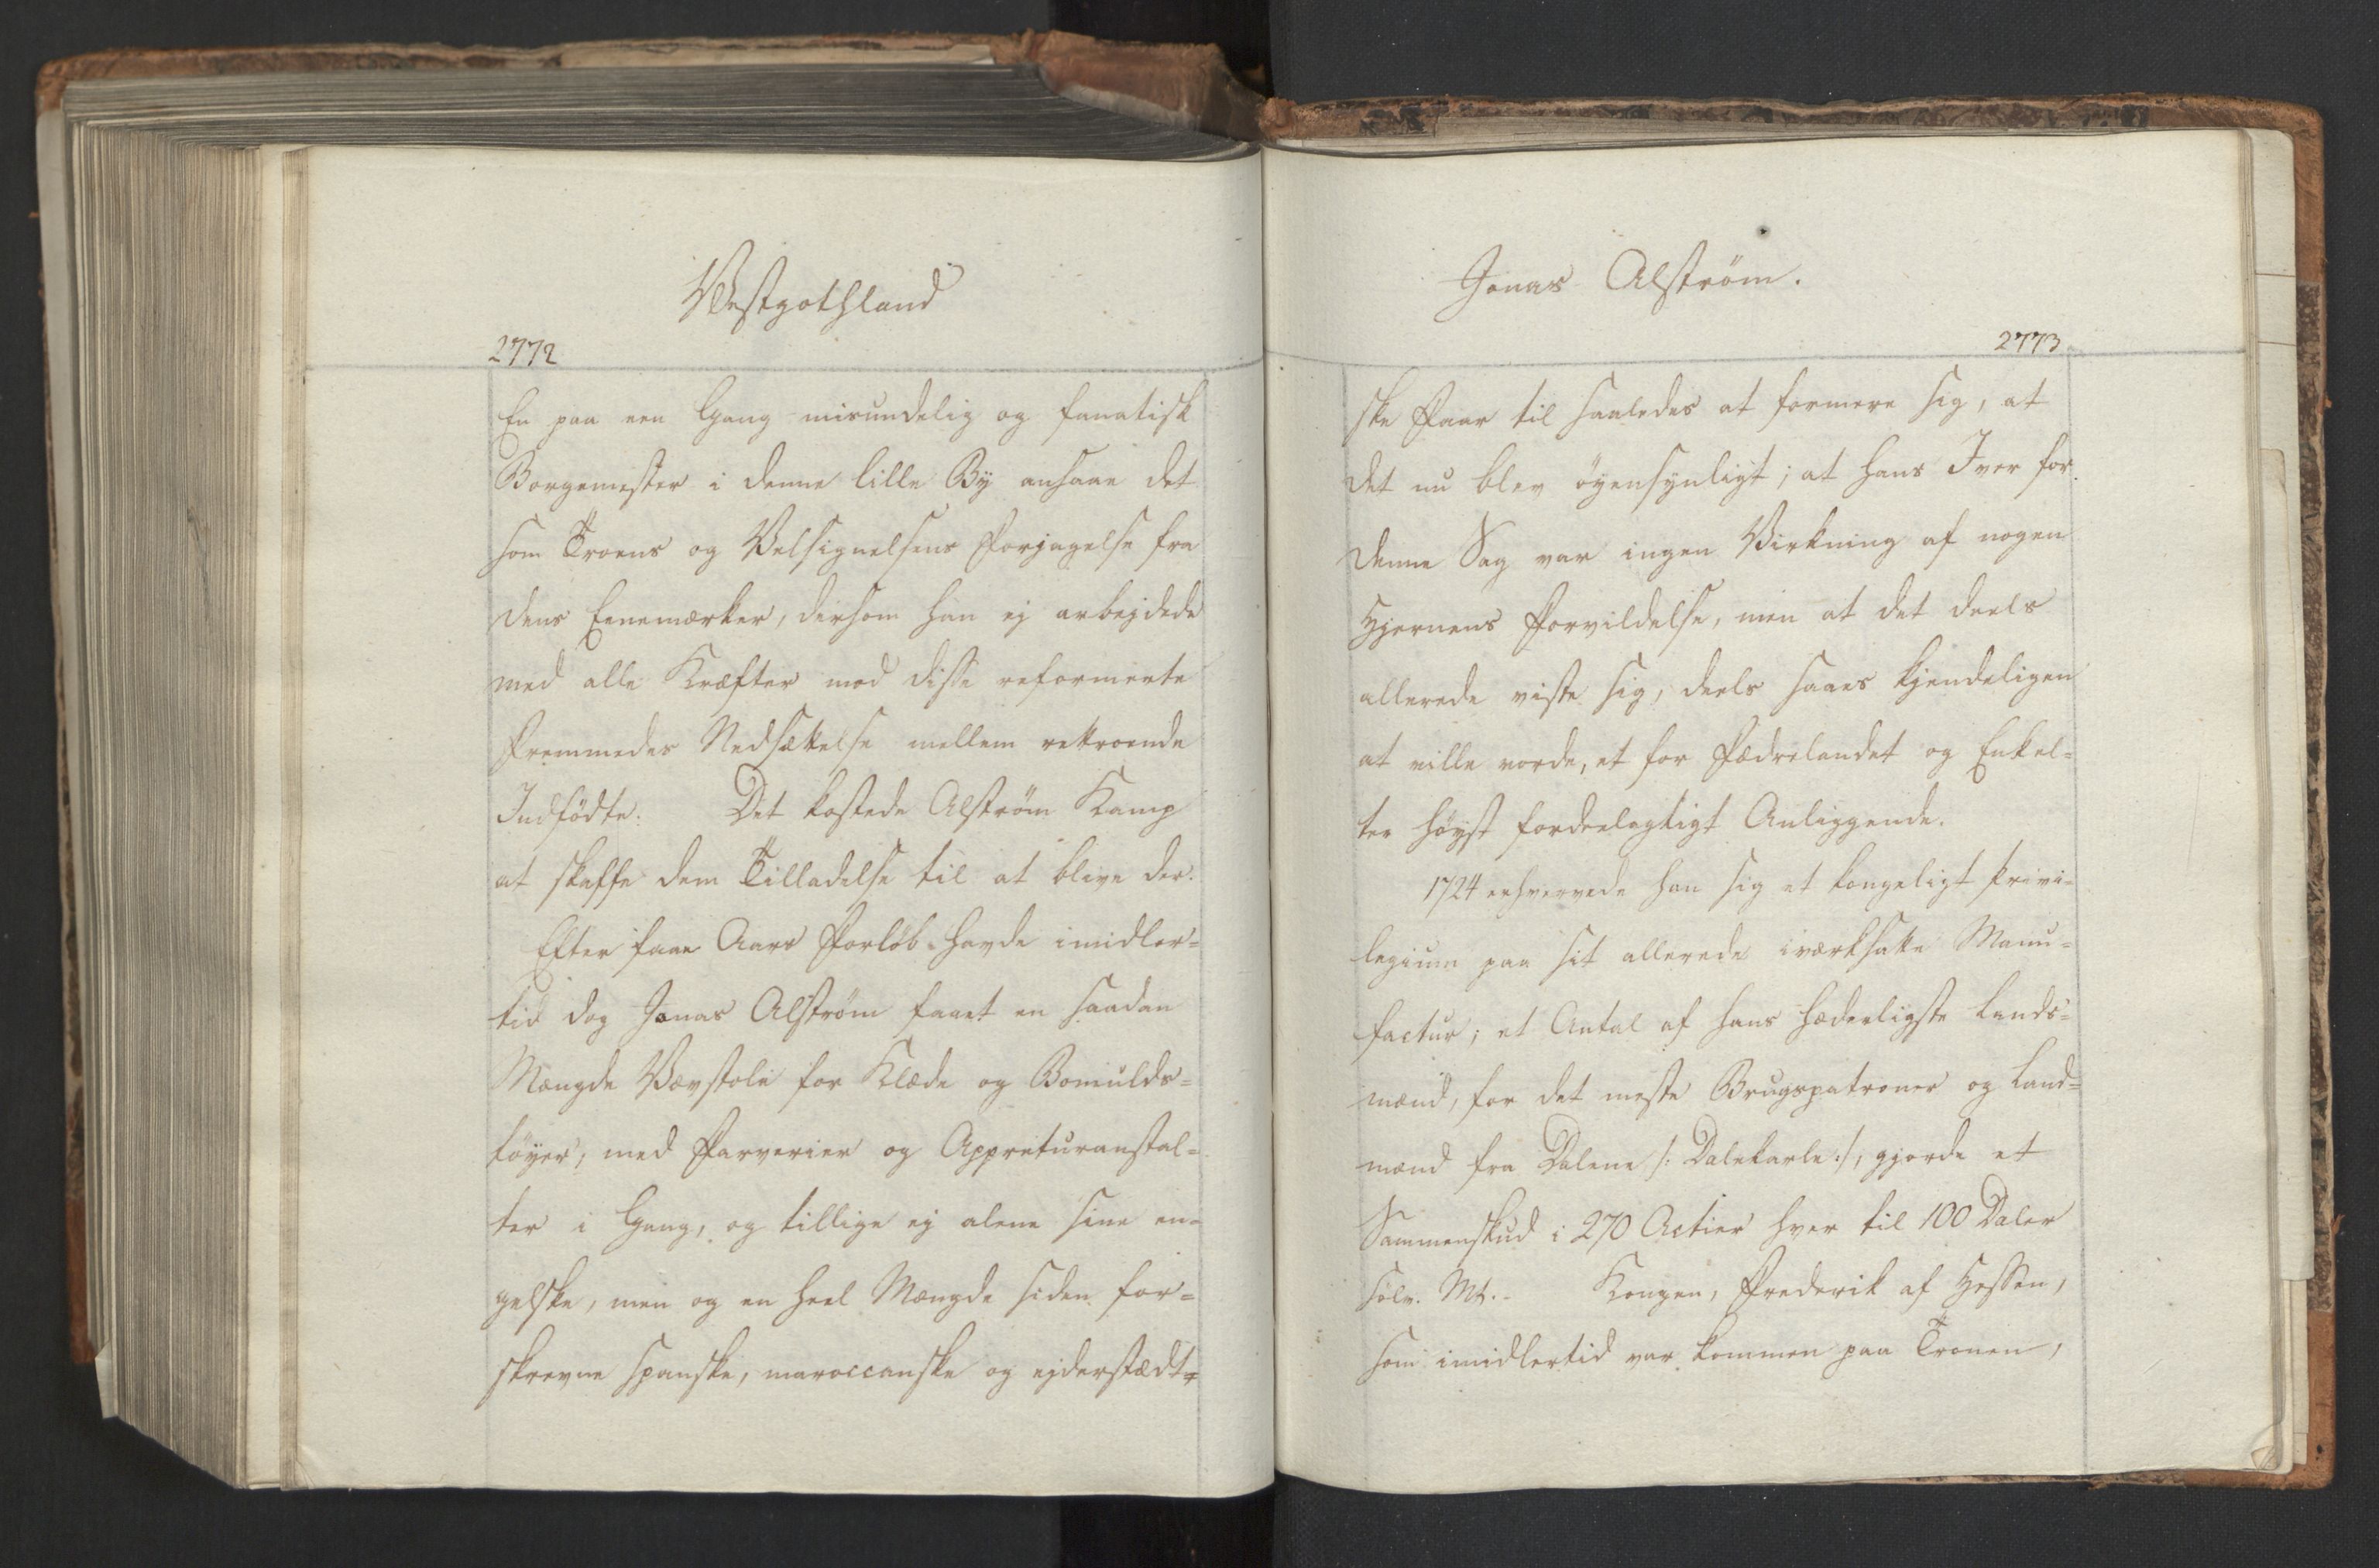 Westgothland
2772
En paa een Gang misundelig og fanatisk
Borgemester i denne lille By ansaae det
som Troens og Velsignelsens Forjagelse fra
dens Enemærker, dersom han ej arbejdede
med alle Kræfter mod disse reformeerte
Fremmedes Nedsættelse mellem rettroende
Indfødte. Det kostede Alstrøm Kamp
at skaffe dem Tilladelse til at blive der.
Efter faae Aars Forløb havde imidler=
tid dog Jonas Alstrøm faaet en saadan
Mængde Vævstole for Klæde og Bomulds=
tøyer, med Farverier og Appreturanstal=
ter i Gang, og tillige ej alene sine en=
gelske, men og en heel Mængde siden for=
skrevne spanske, maroccanske og ejderstædt=
Jonas Alstrøm.
2773
ske Faar til saaledes at formere sig, at
det nu blev øyensynligt; at hans Iver for
denne Sag var ingen Virkning af nogen
Hjernens Forvildelse, men at det deels
allerede viste sig, deels saaes kjendeligen
at ville vorde, et for Fædrelandet og Enkel=
ter høyst fordeelagtigt Anliggende.
1724 erhvervede han sig et kongeligt Privi=
legium paa sit allerede iværksatte Manu=
factur; et Antal af hans hæderligste Lands=
mænd, for det meste Brugspatroner og Land=
mænd fra Dalene /: Dalekarle :/, gjorde et
Sammenskud i 270 Actier hver til 100 Daler
Sølv. Mt. - Kongen, Frederik af Hessen,
som imidlertid var kommen paa Tronen,